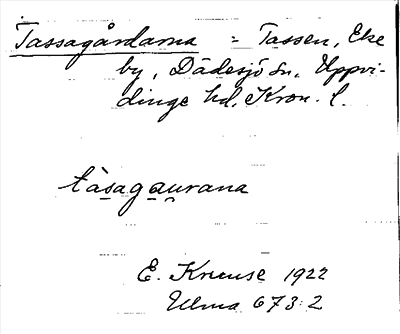 Tassagårdarna = Tassen, Eke
by, Dädesjö sn, Uppvi-
dinge hd, Kron. l.
tàsagau̯rana
E. Kruuse 1922
Ulma 673:2